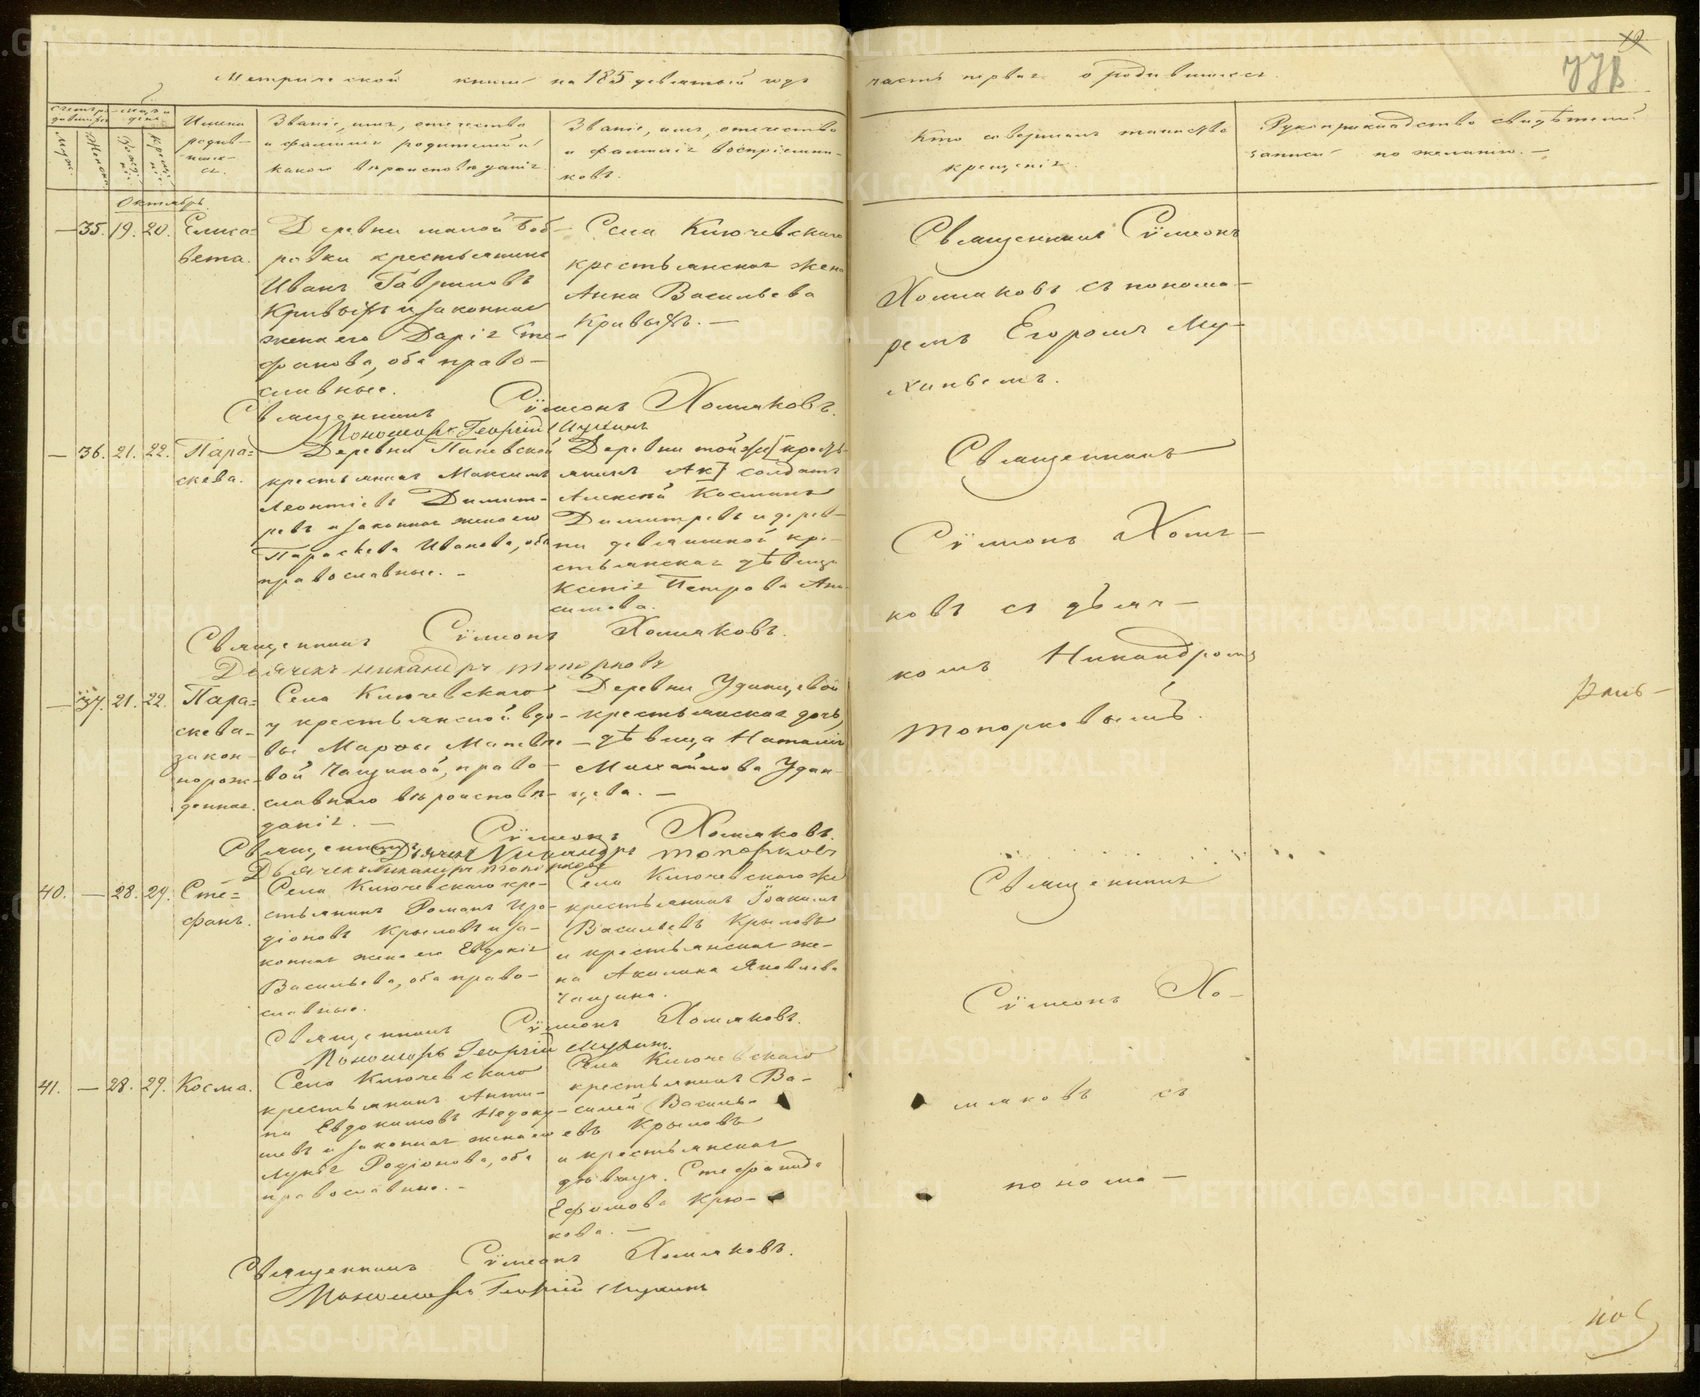 Метрической книги на 185 девятый годъ
часть первая о родившихся.
Счетъ родившихся
Мѣсяцъ и день
Муж.
Женска.
Рожденія
Крещенія
Имена
родив-
шихся.
Званіе, имя, отчество
и фамилія родителей и
какого вѣроисповѣданія
Званіе, имя, отчество
и фамилія воспріемни-
ковъ.
Кто совершалъ таинство
крещенія.
Рукоприкладство свидѣтелей
записи по желанію. —
Октябрь.
— 35. 19. 20. Елиса=
вета.
Деревни малой Боб-
ровки крестьянинъ
Иванъ Гавриловъ
Кривыхъ и законная
жена его Дарія Сте-
фанова, оба право-
славные.
Села Ключевскаго
крестьянская жена
Анна Васильева
Кривыхъ. —
Священникъ Сѵмеонъ Холмаковъ.
Пономарь Георгій Мухинъ
Священникъ Сѵмеонъ
Холмаковъ съ понома-
ремъ Егоромъ Му-
хинымъ.
— 36. 21. 22. Пара=
скева.
крестьянинъ Максимъ
Леонтіевъ Димит-
ревъ и законная жена его
Параскева Иванова, оба
православные. —
Деревни той же [кресть-
янинъ Ак] солдатъ
Алексѣй Косминъ
Димитревъ и дерев-
ни девяшиной кре-
стьянская дѣвица
Ксенія Петрова Ани-
симова.
Священникъ Сѵмеонъ Холмаковъ.
Дьячекъ Никандръ Топорковъ
Священникъ
Сѵмеонъ Холма-
ковъ съ дьяч-
комъ Никандромъ
Топорковымъ.
— 37. 21. 22. Пара=
скева-
закон-
порож-
денная.
Села Ключевскаго
у крестьянской вдо-
вы Марѳы Матвѣе-
вой Чащиной, право-
славнаго вѣроисповѣ-
данія. —
Деревни Удинцевой
крестьянская дочь,
дѣвица Наталія
Михайлова Удин-
цева. —
Священникъ Сѵмеонъ Холмаковъ.
Дьячекъ Никандръ Топорковъ
Дьячекъ Никандръ Топорковъ
40. — 28. 29. Сте=
фанъ.
Села Ключевскаго кре-
стьянинъ Романъ Иро-
діоновъ Крыловъ и за-
конная жена его Евдокія
Васильева, оба право-
славные.
Села Ключевскаго же
крестьянинъ Іоакимъ
Васильевъ Крыловъ
и крестьянская же-
на Акилина Яковлева
Чащина.
Священникъ Сѵмеонъ Холмаковъ.
Пономарь Георгій Мухинъ.
Священникъ
Сѵмеонъ Хо-
лмаковъ съ
понома-
41. — 28. 29. Косма.
Села Ключевскаго
крестьянинъ Анти-
па Евдокимовъ Недоку-
шевъ и законная жена его
Лукія Родіонова, оба
православные. —
Села Ключевскаго
крестьянинъ Ва-
силей Василь-
евъ Крыловъ
и крестьянская
дѣвица Стефанида
Ефимова Крю-
кова. —
Священникъ Сѵмеонъ Холмаковъ.
Пономарь Георгій Мухинъ
METRIKI.GASO-URAL.RU